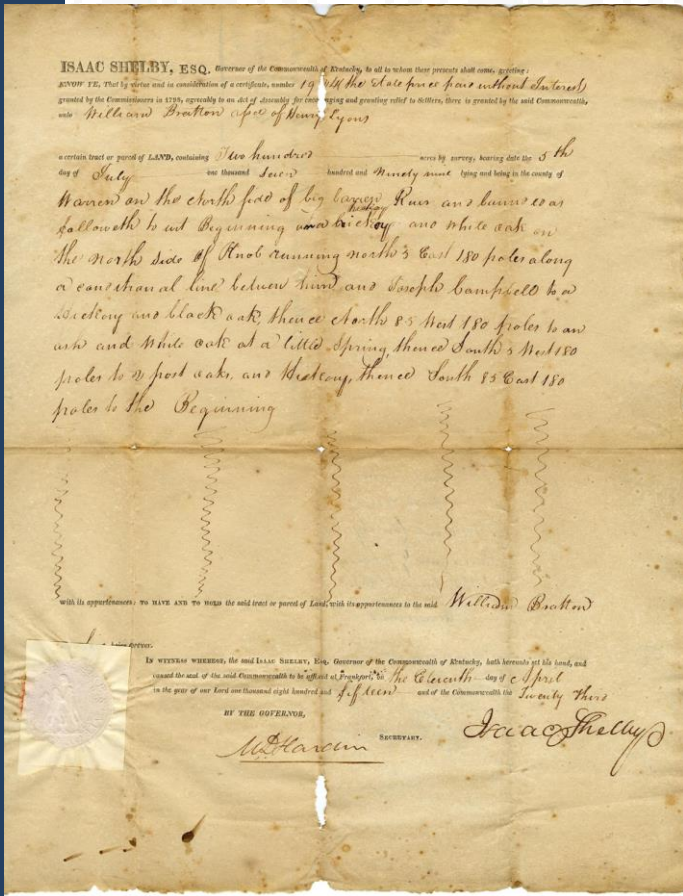 ISAAC SHELBY, ESQ. Governor of the Commonwealth of Kentucky, to all to whom these presents shall come, greeting:
KNOW YE, That by virtue and in consideration of a certificate, number the State price paid without Interest
granted by the Commissioners in 1798, agreeably to an Act of Assembly for encouraging and granting relief to Settlers, there is granted by the said Commonwealth,
unto William Bratton of Henry Lyons
a certain tract or parcel of LAND, containing Two hundred acres by survey, bearing date the 5th
day of July one thousand Seven hundred and Ninety nine lying and being in the county of
Warren on the North side of big barren River and bounded as
followeth to wit Beginning hickory and White oak on
the north side of Knob running north 5 East 180 poles along
a conditional line between him and Joseph Campbell to a
Hickory and black oak, thence North 85 West 180 poles to an
ash and White oak at a little Spring, thence South 5 West 180
poles to 2 post oaks, and Hickory, thence South 85 East 180
poles to the Beginning
with its appurtenances: TO HAVE AND TO HOLD the said tract or parcel of Land, with its appurtenances to the said William Bratton
heirs forever.
IN WITNESS WHEREOF, the said ISAAC SHELBY, ESQ. Governor of the Commonwealth of Kentucky, hath hereunto set his hand, and
caused the seal of the said Commonwealth to be affixed at Frankfort, on the Eleventh day of April
in the year of our Lord one thousand eight hundred and fifteen and of the Commonwealth the Twenty third
BY THE GOVERNOR,
Isaac Shelby
MD Hardin SECRETARY.